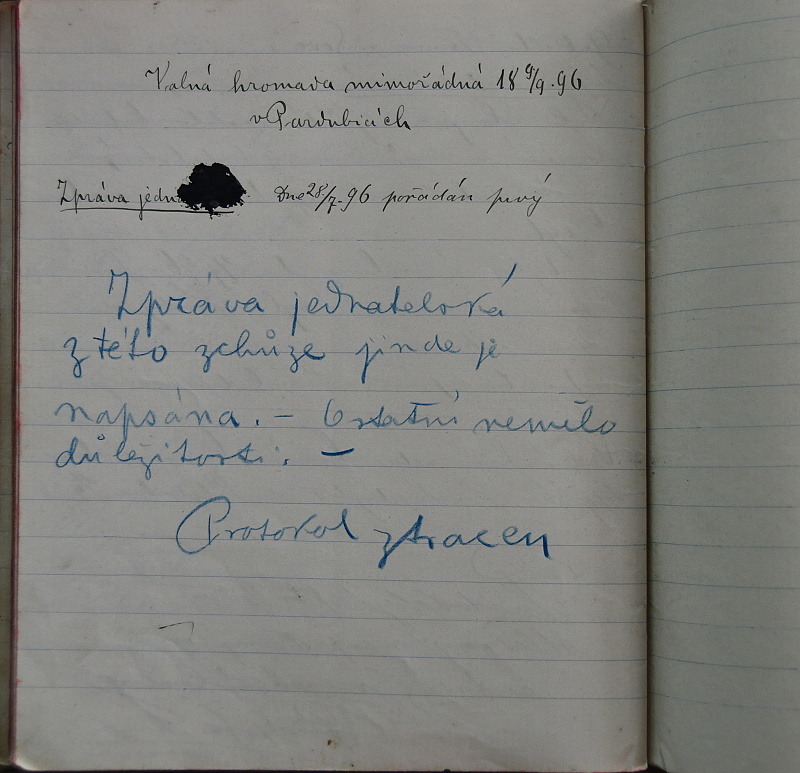 Valná hromada mimořádná 18 9/9. 96
v Pardubicích
Zpráva jedn Dne 28/7. 96 pořádán prvý
Zpráva jednatelská
z této schůze jinde je
napsána. — Ostatní nemělo
důležitosti. —
Protokol ztracen